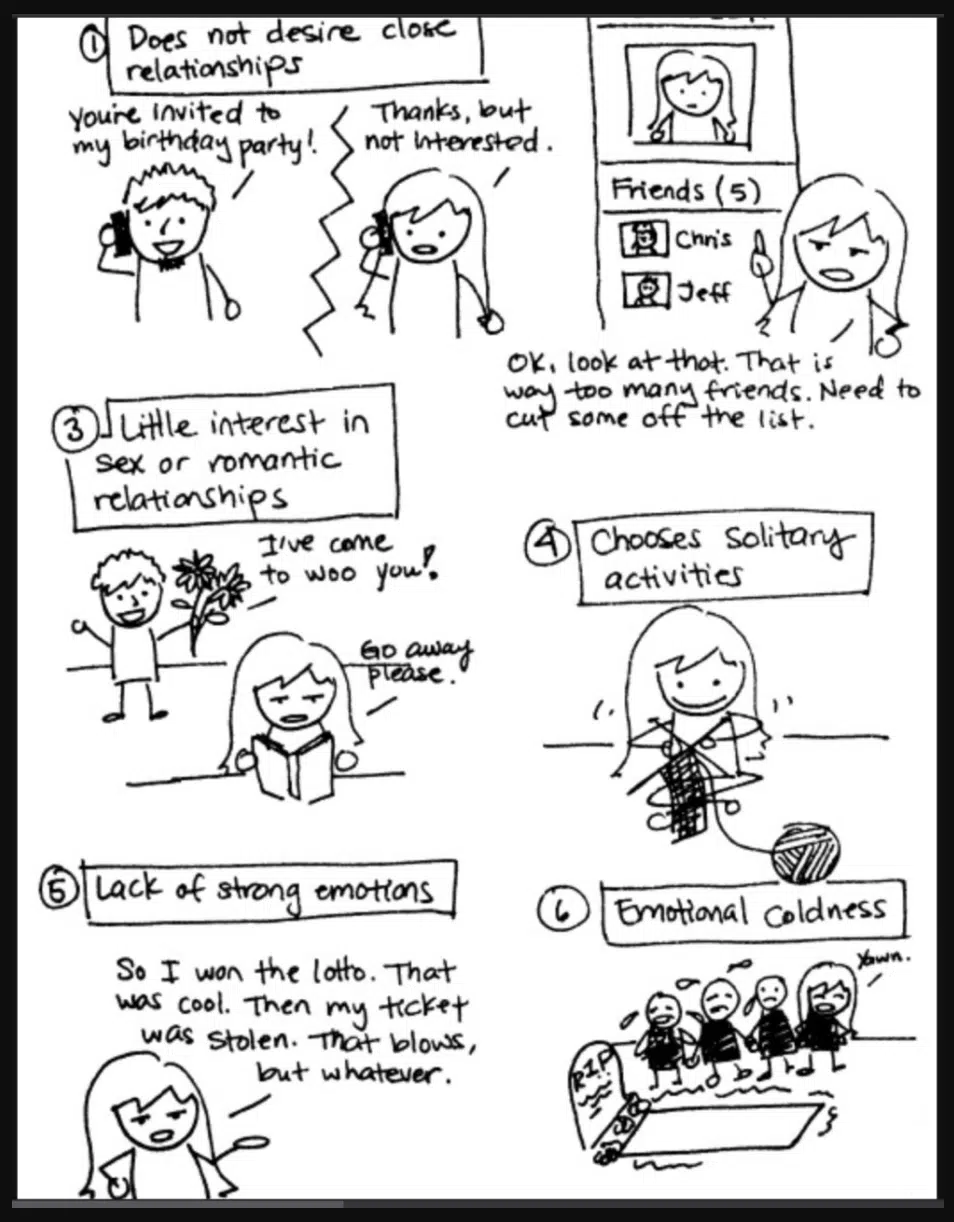 ① Does not desire close
relationships
You're invited to
my birthday party!
Thanks, but
not interested.
Friends (5)
Chris
Jeff
OK, look at that. That is
way too many friends. Need to
cut some off the list.
③ Little interest in
sex or romantic
relationships
I've come
to woo you!
Go away
please.
④ Chooses solitary
activities
⑤ Lack of strong emotions
So I won the lotto. That
was cool. Then my ticket
was stolen. That blows,
but whatever.
⑥ Emotional Coldness
Yawn.
R.I.P